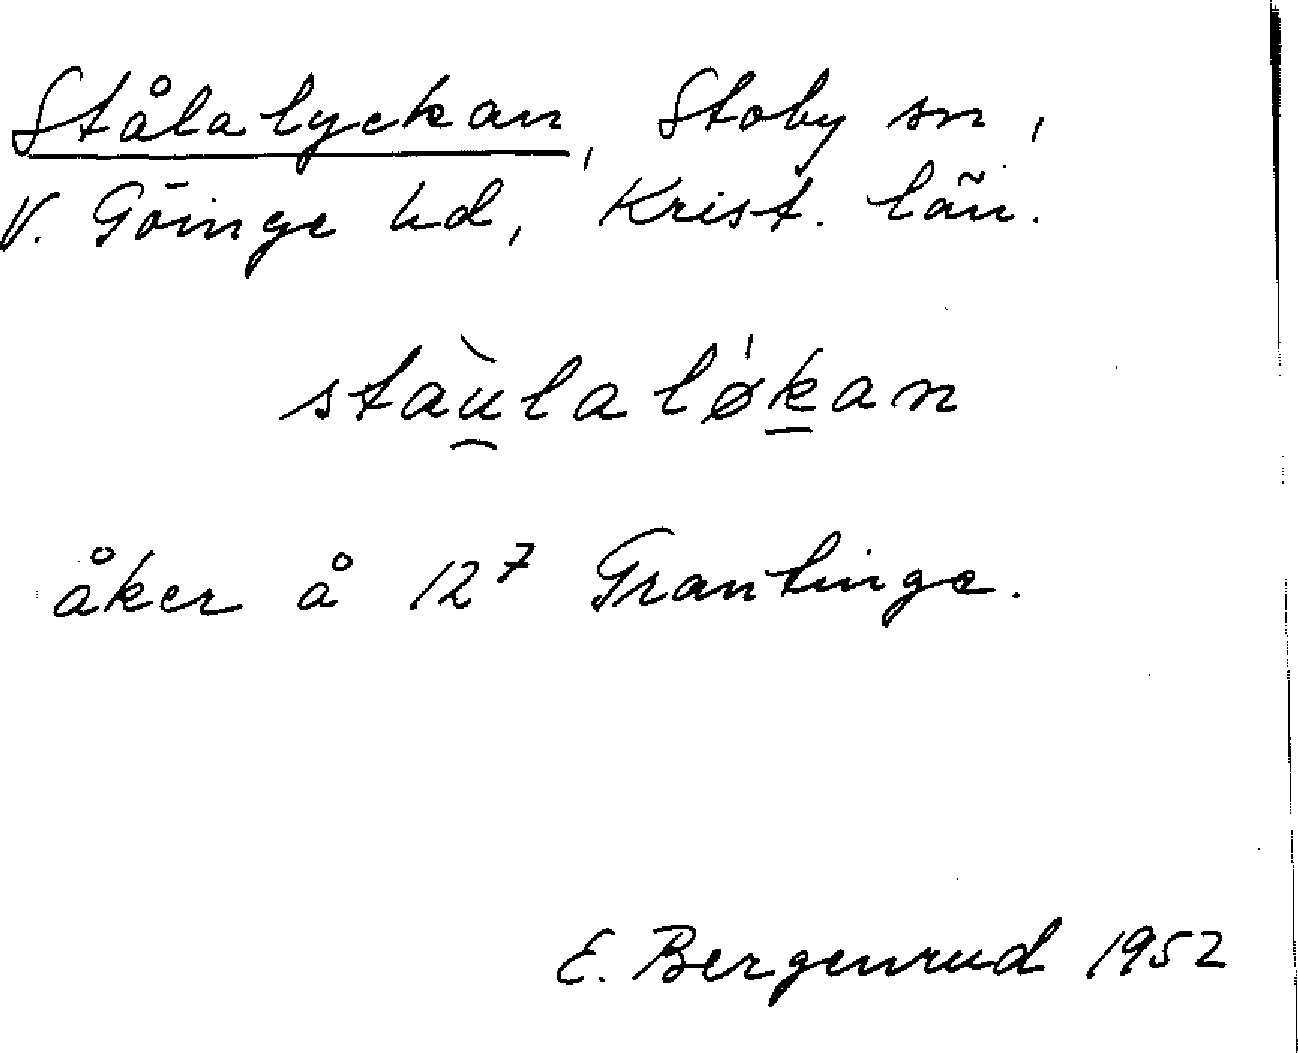 Stålalyckan, Stoby sn,
V. Göinge hd, Krist. län.
staù̯lalø̍ḵan
åker å 12⁷ Grantinge.
E. Bergenrud 1952